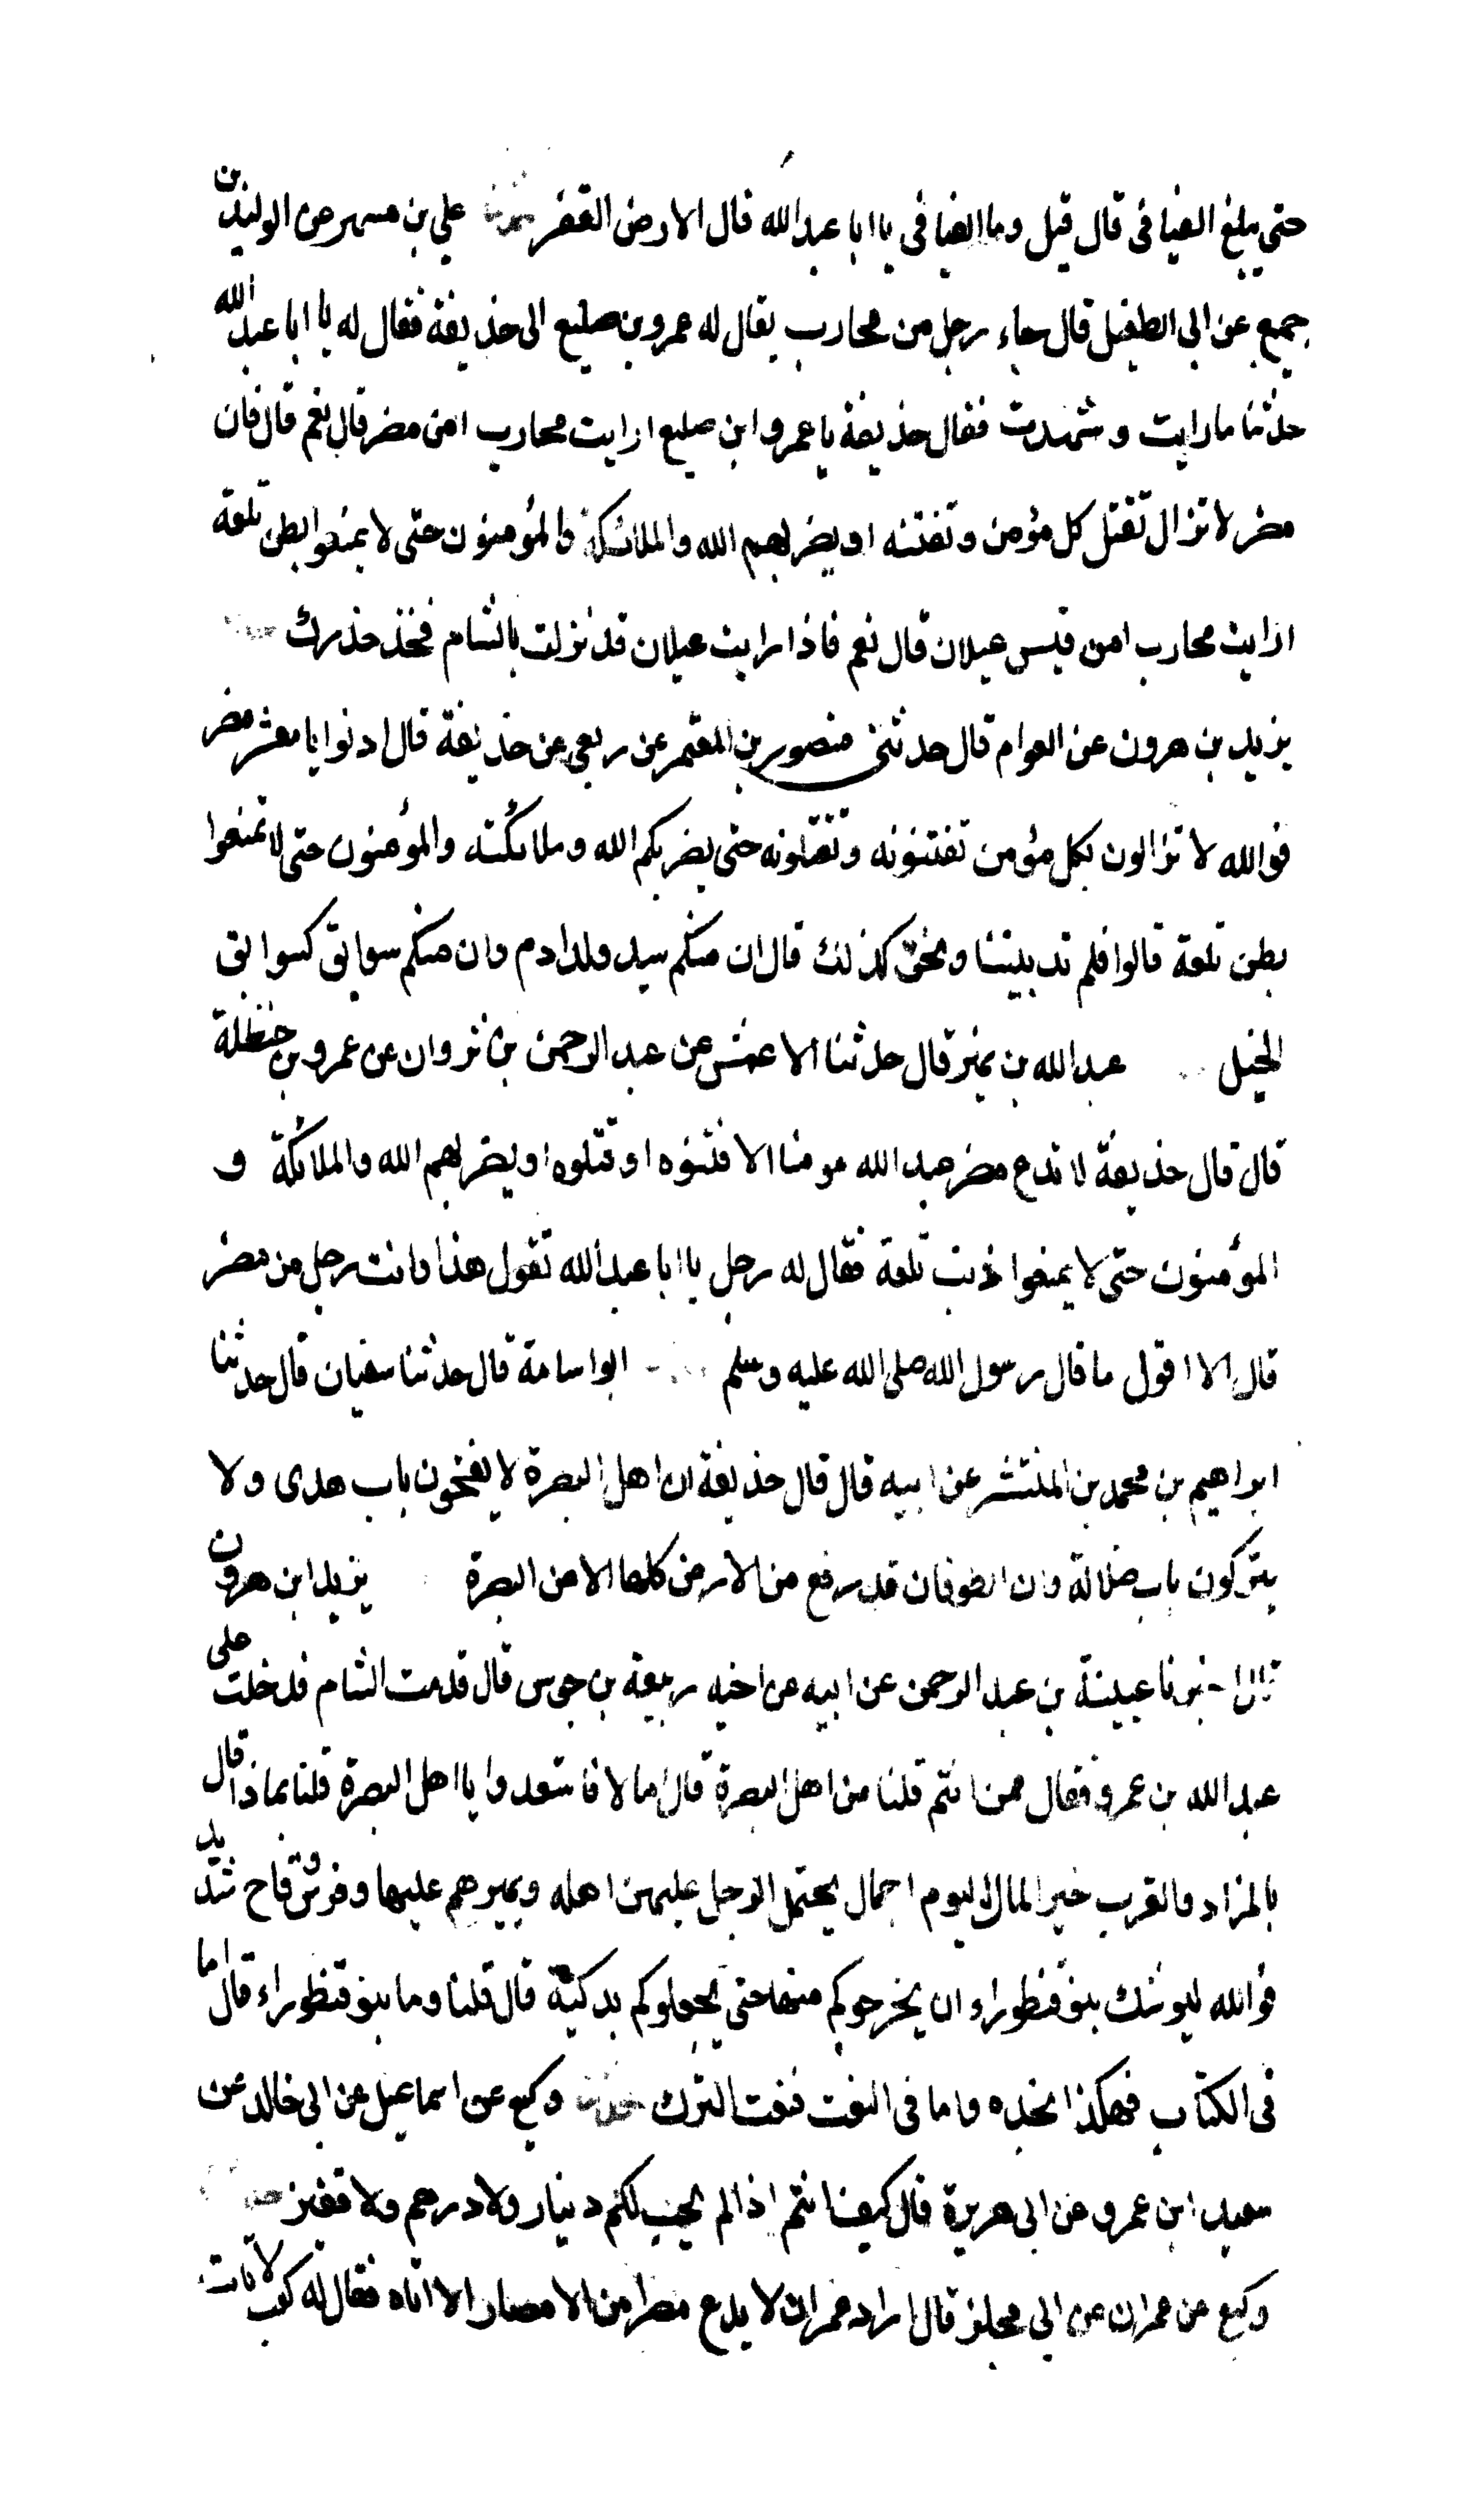 حتى يبلغ الفيافى قال قيل وما الفيافى يا ابا عبد الله قال الارض القفر حدثنا علي بن مسهر عن الوليد بن
جميع عن ابى الطفيل قال جاء رجل من محارب يقال له عمرو بن صليع الى حذيفة فقال له يا ابا عبد الله
حدثنا ما رايت وشهدت فقال حذيفة يا عمرو ابن صليع ارايت محارب امن مضر قال نعم قال فان
مضر لا تزال تقتل كل مؤمن وتفتنه او يضربهم الله والملائكة والمؤمنون حتى لا يمنعوا بطن تلعة
ارايت محارب امن قيس عيلان قال نعم فاذا رايت عيلان قد نزلت بالشام فخذ حذرك
يزيد بن هرون عن العوام قال حدثنى منصور بن المعتمر عن ربعي عن حذيفة قال ادنوا يا معشر مضر
فوالله لا تزالون بكل مؤمن تفتنونه وتقتلونه حتى يضربكم الله وملائكته والمؤمنون حتى لا تمنعوا
بطن تلعة قالوا فلم تدنيننا ونحن كذلك قال ان منكم سيد ولد ادم وان منكم سوابق كسوابق
الخيل عبد الله بن نمير قال حدثنا الاعمش عن عبد الرحمن بن ثروان عن عمرو بن حنظلة
قال قال حذيفة لا تدع مضر عبد الله مومنا الا فتنوه او قتلوه او يضربهم الله والملائكة و
المؤمنون حتى لا يمنعوا ذنب تلعة فقال له رجل يا ابا عبد الله تقول هذا وانت رجل من مضر
قال الا اقول ما قال رسول الله صلى الله عليه وسلم ابو اسامة قال حدثنا سفيان قال حدثنا
ابراهيم بن محمد بن المنتشر عن ابيه قال قال حذيفة ان اهل البصرة لا يفتحون باب هدى ولا
يتركون باب ضلالة وان الطوفان قد رفع من الارض كلها الا من البصرة يزيد ابن هرون
قال اخبرنا عيينة بن عبد الرحمن عن ابيه عن اخيه ربيعة بن جوس قال قدمت الشام فدخلت على
عبد الله بن عمرو فقال ممن انتم قلنا من اهل البصرة قال اما لا فاستعدوا يا اهل البصرة قلنا بماذا قال
بالمزاد والقرب خير المال اليوم اجمال يحتمل الرجل عليهن اهله ويميرهم عليها وفرس وقاح شديد
فوالله ليوشك بنو قنطوراء ان يخرجوكم منها حتى يجعلوكم بركية قال قلنا وما بنو قنطوراء قال اما
فى الكتاب فهكذا نجده واما فى النعت فنعت الترك حدثنا وكيع عن اسماعيل عن ابى خالد عن
سعيد ابن عمرو عن ابى هريرة قال كيف انتم اذا لم يجب لكم دينار ولا درهم ولا قفيز
وكيع عن عمران عن ابى مجلز قال اراد عمر ان لا يدع مصرا من الامصار الا اتاه فقال له كعب لا تات